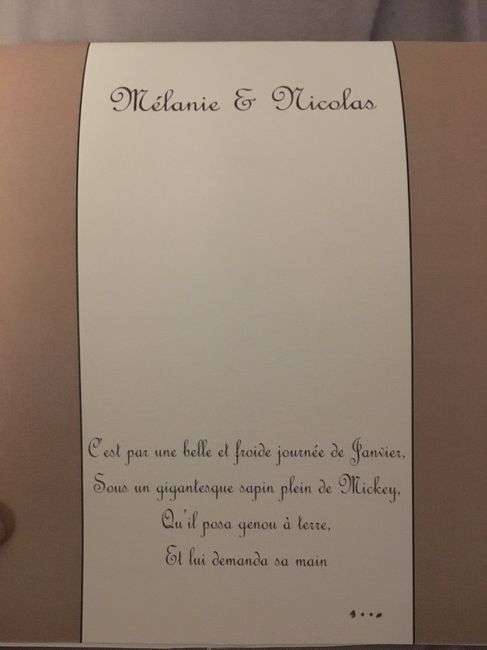 Mélanie & Nicolas
C'est par une belle et froide journée de Janvier,
Sous un gigantesque sapin plein de Mickey,
Qu'il posa genou à terre,
Et lui demanda sa main